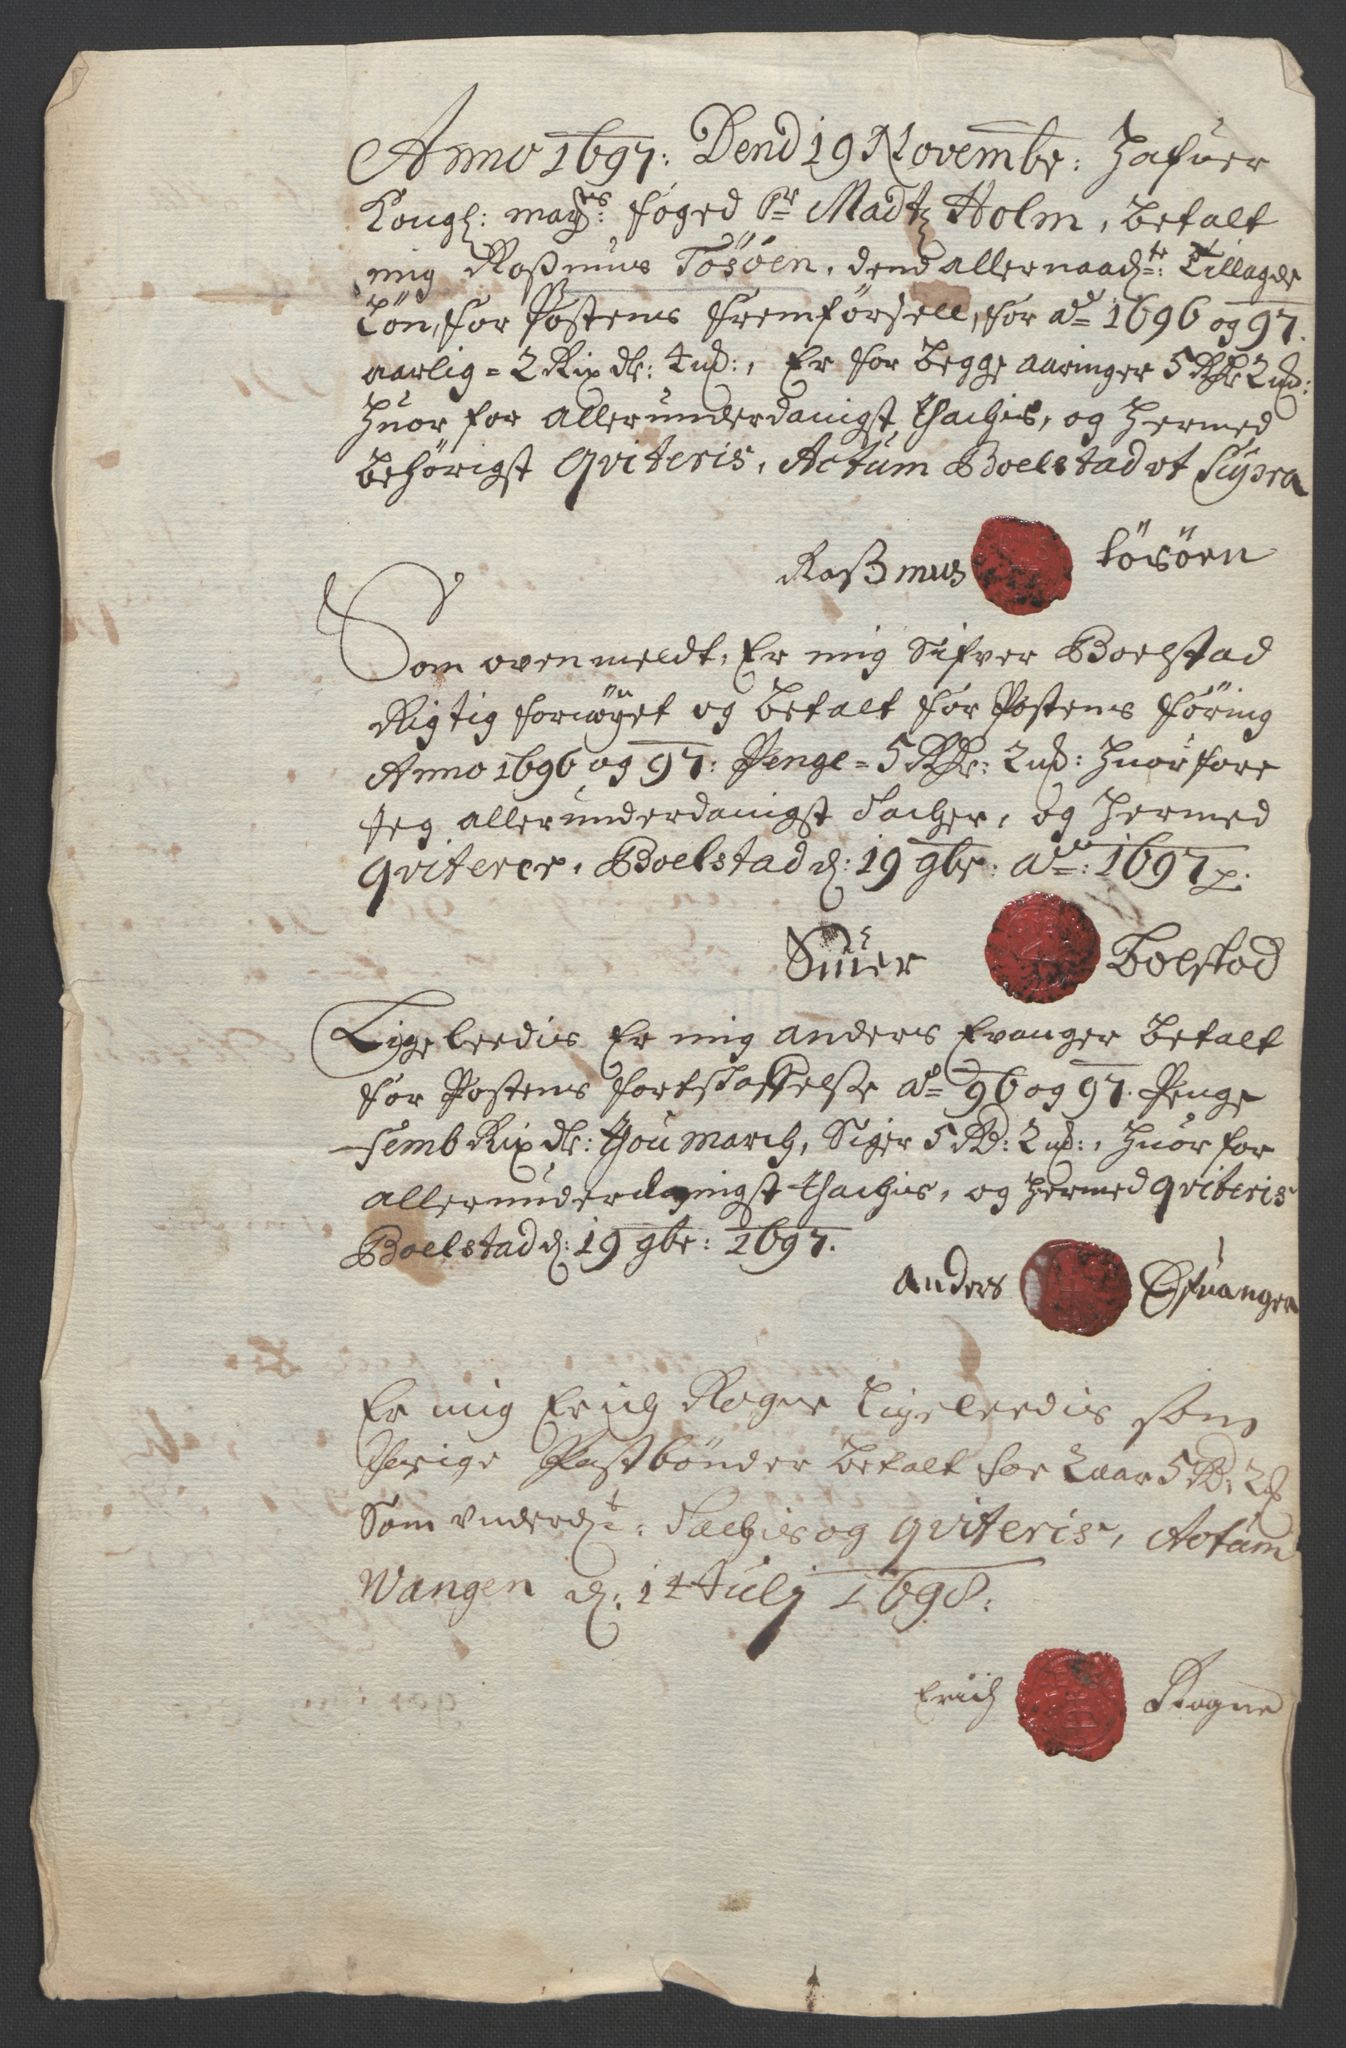 Anno 1697: Dend 19 Novembr: Hafuer
Kongl: mayes: foged Sr Madtz Holm, betalt
mig Rassmus Tösöen, dend allernaadte: Tillagde
Lön, for Postens fremförsell, for ao 1696 og 97.
aarlig = 2 Rix dr: 4 mk:, Er for begge aaringer 5 Rdr 2 mk:
Huor for allerunderdanigst thachis, og hermed
behörigst qviteris, Actum Boelstad ut Supra
Rassmus Tösöen
Som ovenmeldt, Er mig Sifver Boelstad
Rigtig fornöyet og betalt for Postens föring
Anno 1696 og 97: Penge = 5 Rdr: 2 mk: Huorfore
Jeg allerunderdanigst tacher, og hermed
qviterer, Boelstad d: 19 9br: ao: 1697
Siuer Bolstad
Ligeleedis Er mig anders Evanger betalt
for Postens fortskaffelse ao 96 og 97. Penge
femb Rix dr: thou march, Siger 5 RD: 2 mk:, Huor for
allerunderdanigst thachis, og hermed qviteris
Boelstad d: 19 9br: 1697.
anders Efuanger
Er mig Erich Rogne ligeleedis som
öfrige Postbönder betalt for 2 aar 5 RD: 2 mk
Som underdt: tachis og qviteris, Actum
Wangen d: 14 Julj 1698:
Erich Rogne